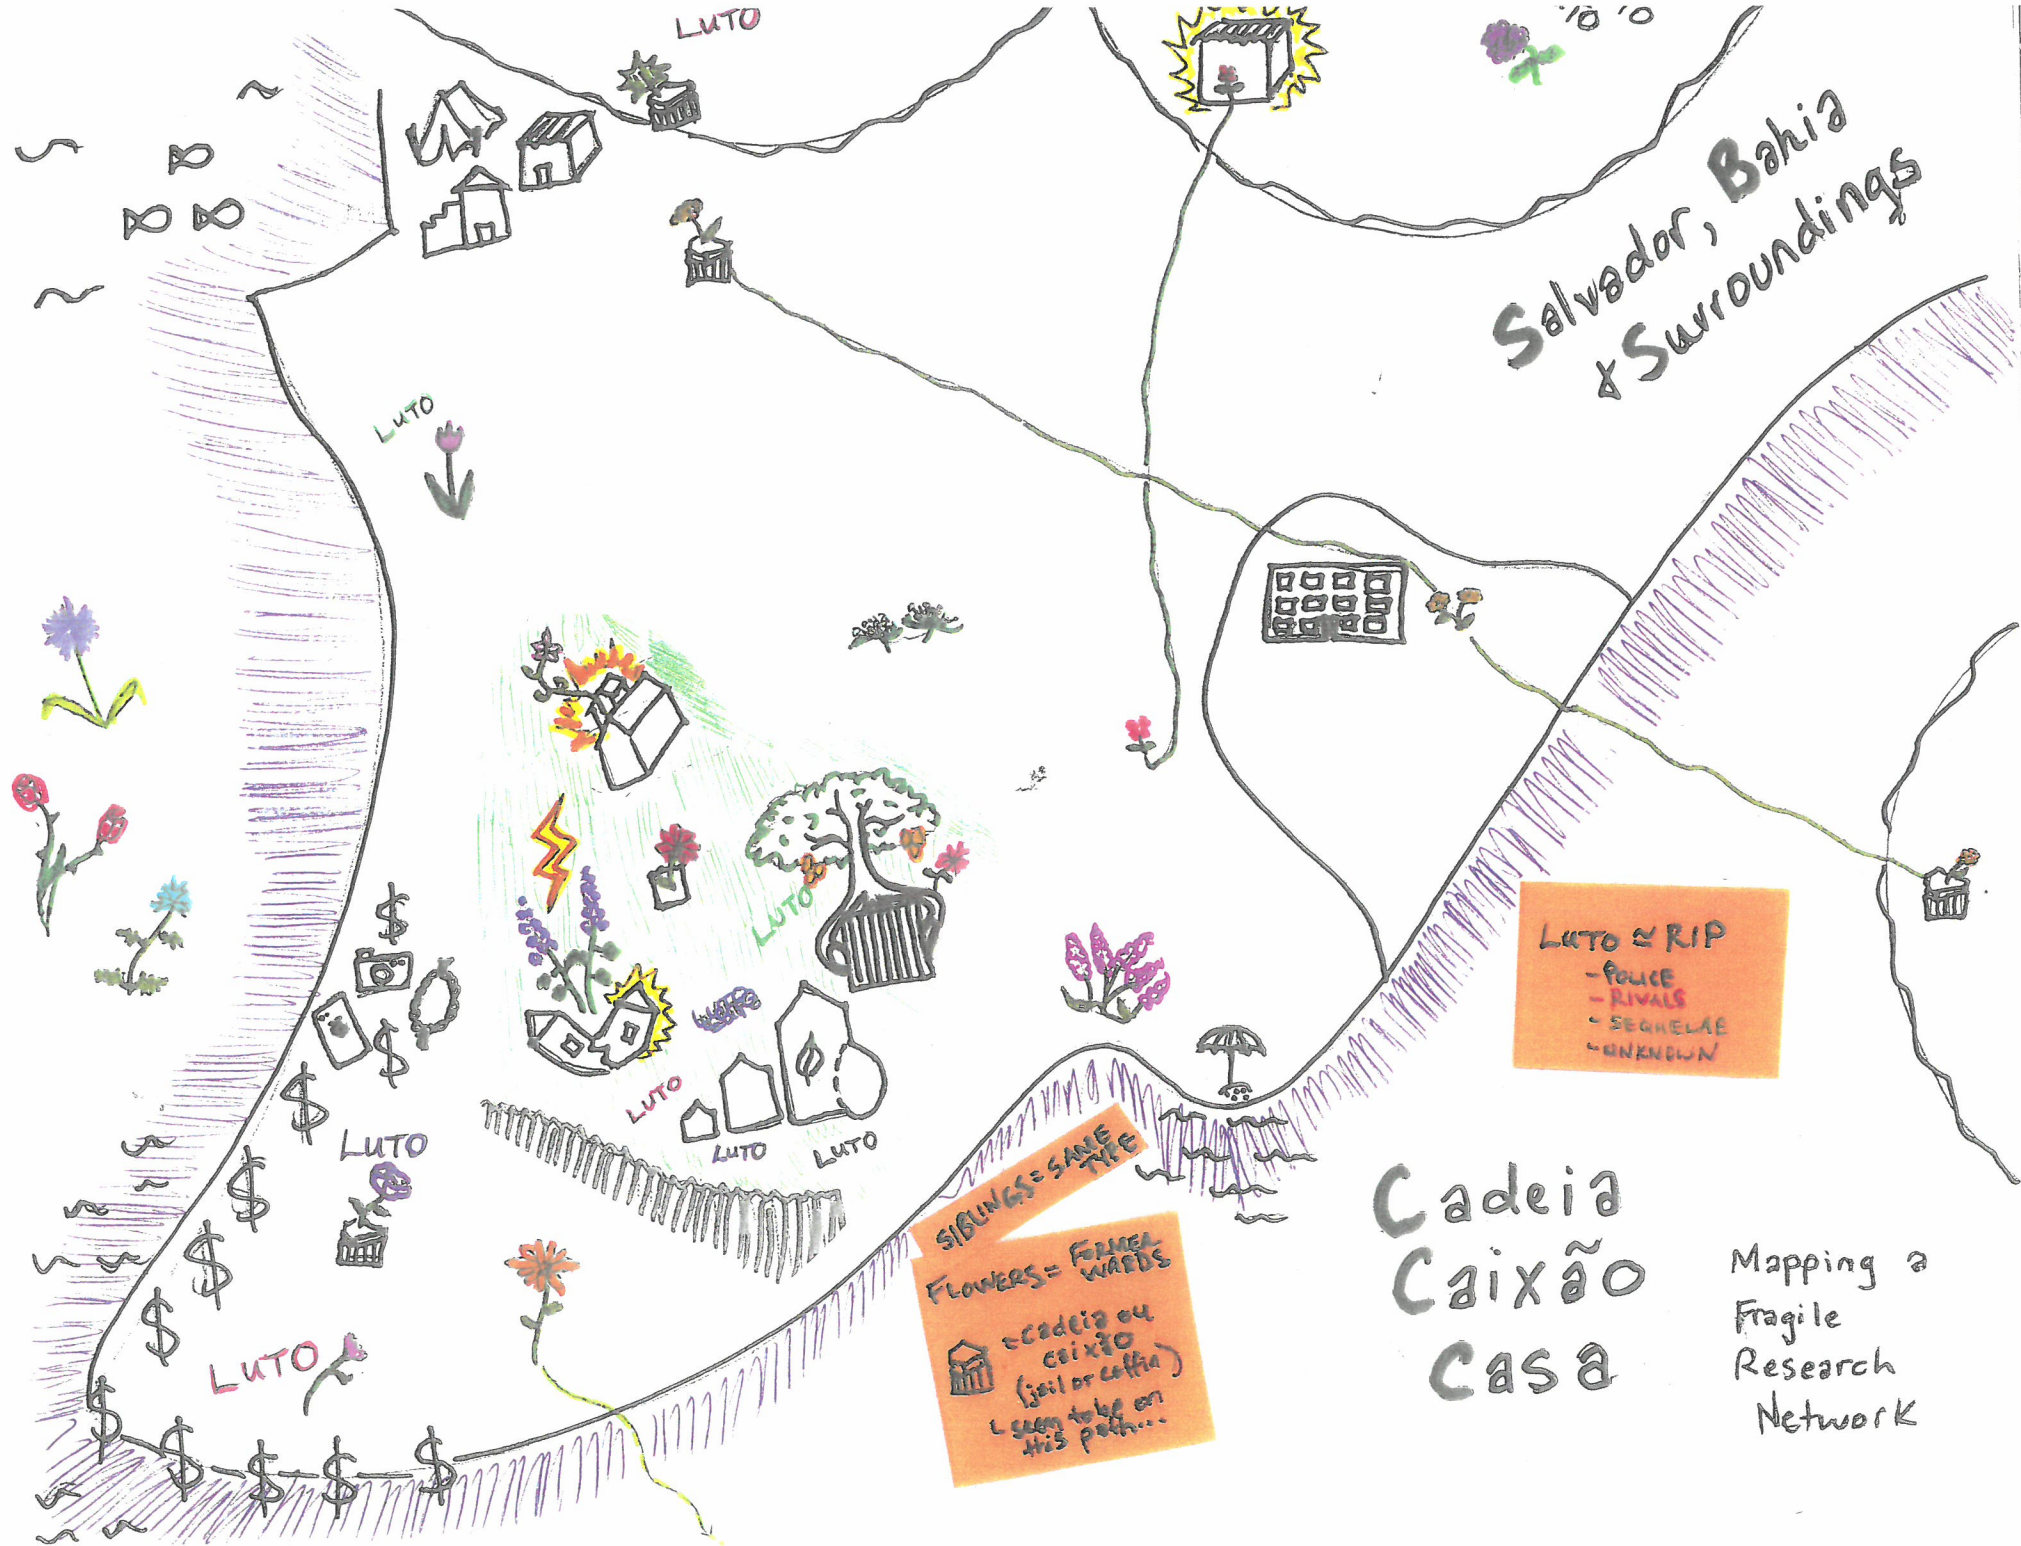 LUTO
Salvador, Bahia
& Surroundings
LUTO
LUTO
LUTO
LUTO
LUTO
LUTO
LUTO
LUTO ≃ RIP
- POLICE
- RIVALS
- SEQUELAE
- UNKNOWN
SIBLINGS = SAME
TYPE
FLOWERS = FORMER
WARDS
= cadeia ou
caixão
(jail or coffin)
↳ seem to be on
this path...
Cadeia
Caixão
Casa
Mapping a
Fragile
Research
Network
$
$
$
$
$
$
$
$
$
$
$